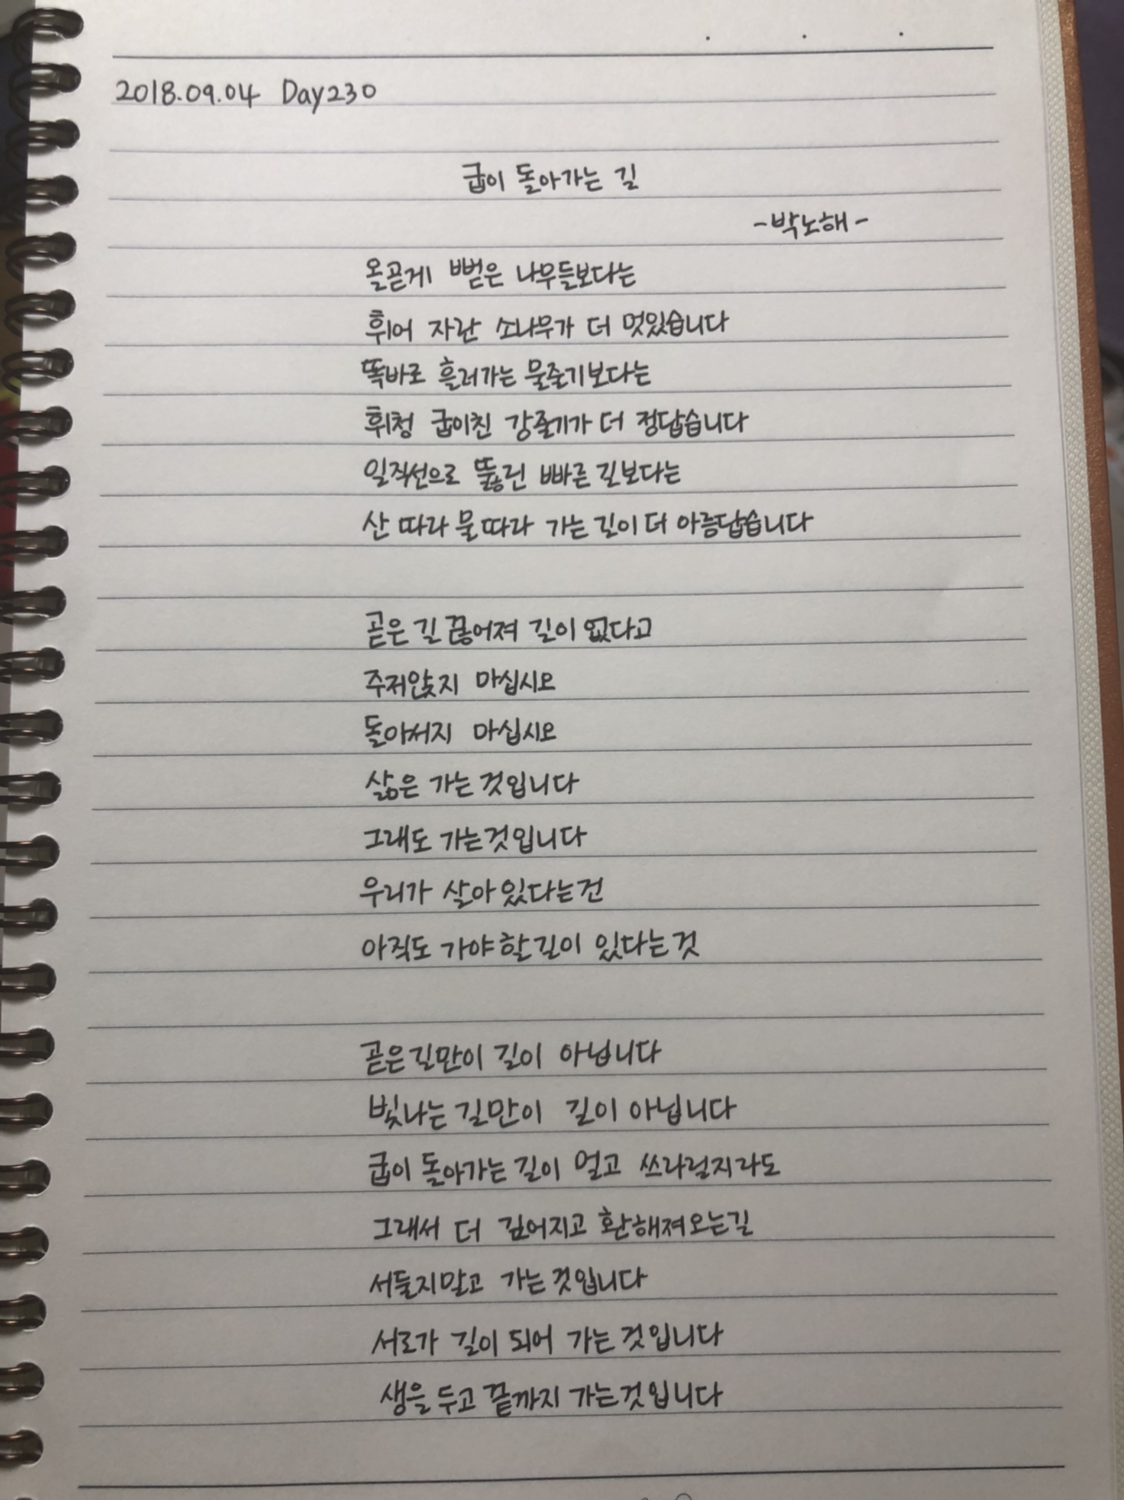 2018.09.04 Day230
굽이 돌아가는 길
-박노해-
올곧게 뻗은 나무들보다는
휘어 자란 소나무가 더 멋있습니다
똑바로 흘러가는 물줄기보다는
휘청 굽이친 강줄기가 더 정답습니다
일직선으로 뚫린 빠른 길보다는
산 따라 물 따라 가는 길이 더 아름답습니다
곧은 길 끊어져 길이 없다고
주저앉지 마십시오
돌아서지 마십시오
삶은 가는 것입니다
그래도 가는 것입니다
우리가 살아있다는 건
아직도 가야 할 길이 있다는 것
곧은 길만이 길이 아닙니다
빛나는 길만이 길이 아닙니다
굽이 돌아가는 길이 멀고 쓰라릴지라도
그래서 더 깊어지고 환해져오는 길
서둘지말고 가는 것입니다
서로가 길이 되어 가는 것입니다
생을 두고 끝까지 가는 것입니다